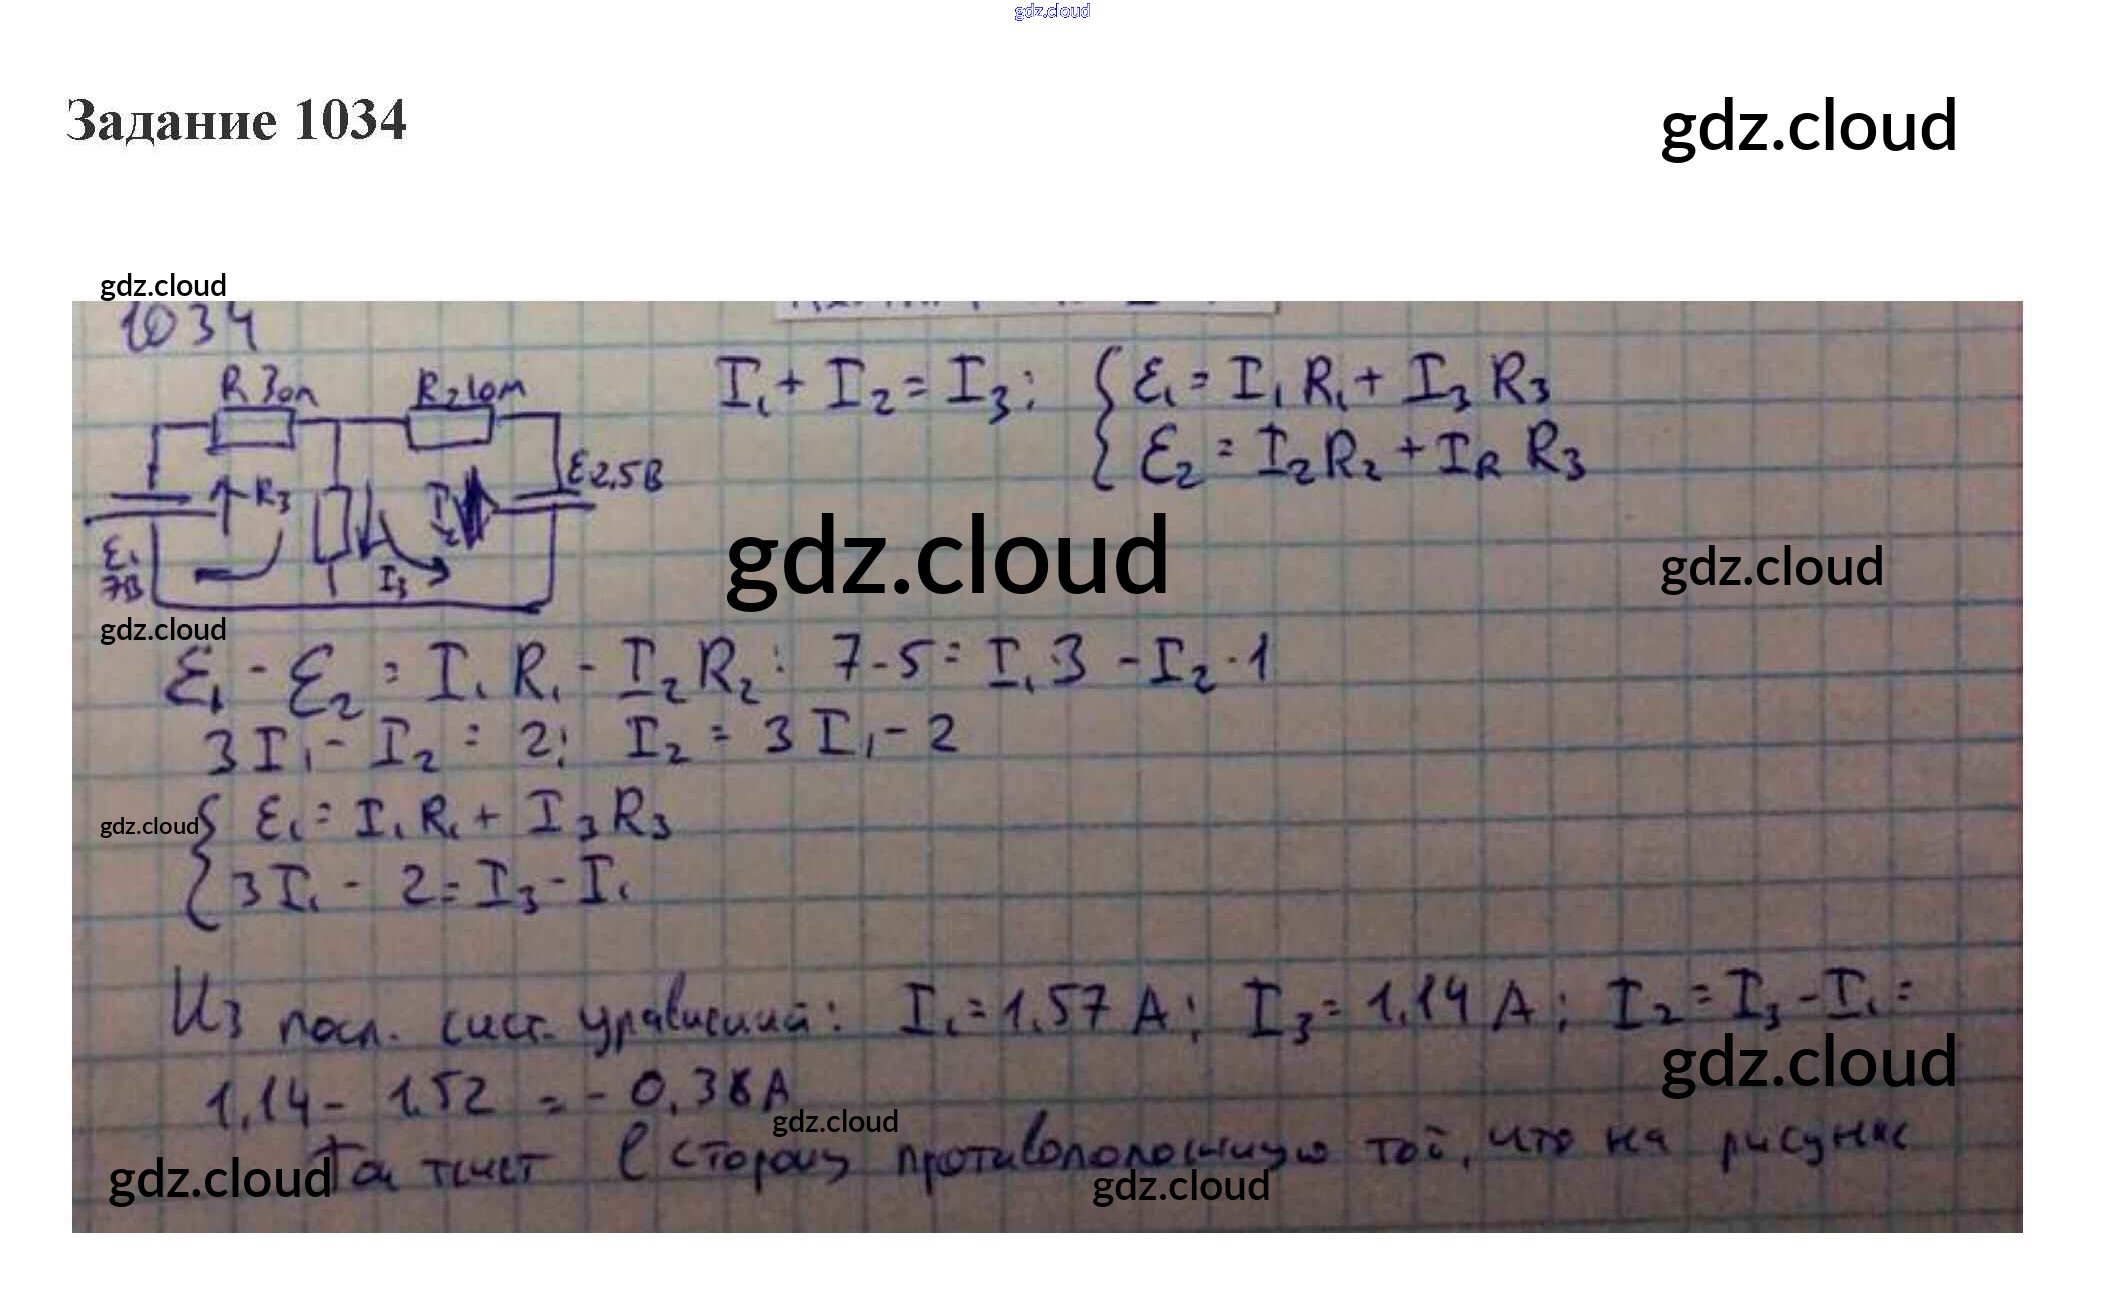 gdz.cloud
Задание 1034
gdz.cloud
gdz.cloud
1034
R 3 ом
R2 1 ом
I₁ + I₂ = I₃; { ℰ₁ = I₁ R₁ + I₃ R₃
ℰ₂ = I₂ R₂ + I_R R₃
ℰ2,5В
R₃
I₂
ℰ₁
7В
I₃
gdz.cloud
gdz.cloud
gdz.cloud
ℰ₁ - ℰ₂ = I₁ R₁ - I₂ R₂ : 7-5 = I₁ 3 - I₂ · 1
3 I₁ - I₂ = 2; I₂ = 3 I₁ - 2
gdz.cloud
{ ℰ₁ = I₁ R₁ + I₃ R₃
3 I₁ - 2 = I₃ - I₁
Из посл. сист. уравнений: I₁ = 1,57 А; I₃ = 1,14 А; I₂ = I₃ - I₁ =
gdz.cloud
1,14 - 1.52 = - 0,38 А
gdz.cloud
Ток течет в сторону противоположную той, что на рисунке
gdz.cloud
gdz.cloud